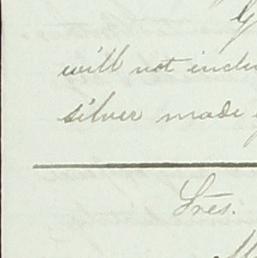 will not inclu
silver made
Sres.